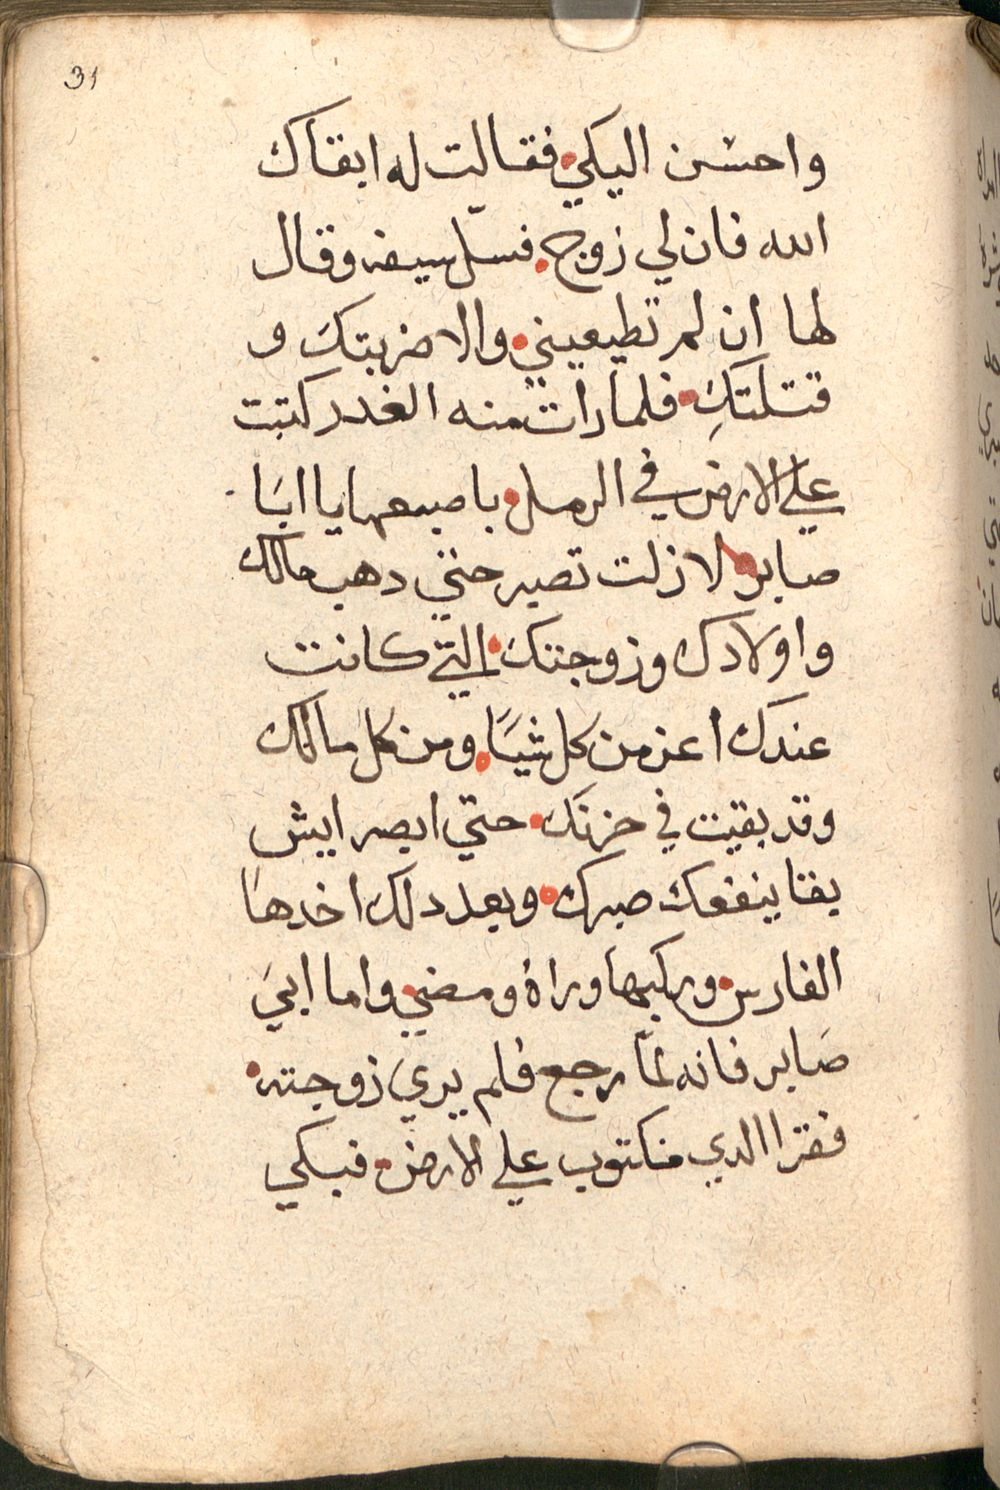 31
واحسن اليكي فقالت له ابقاك
الله فان لي زوج فسل سيفه وقال
لها ان لم تطيعيني والا ضربتك و
قتلتكِ فلما رات منه الغدر كتبت
علي الارض في الرمل باصبعها يا ابا
صابر لا زلت تصبر حتي دهب مالك
واولادك وزوجتك التي كانت
عندك اعز من كل شيا ومن كل مالك
وقد بقيت في حزنك حتي ابصر ايش
بقا ينفعك صبرك وبعد دلك اخدها
الفارس وركبها وراه ومضي واما ابي
صابر فانه لما رجع فلم يري زوجته
فقرا الدي مكتوب علي الارض فبكي